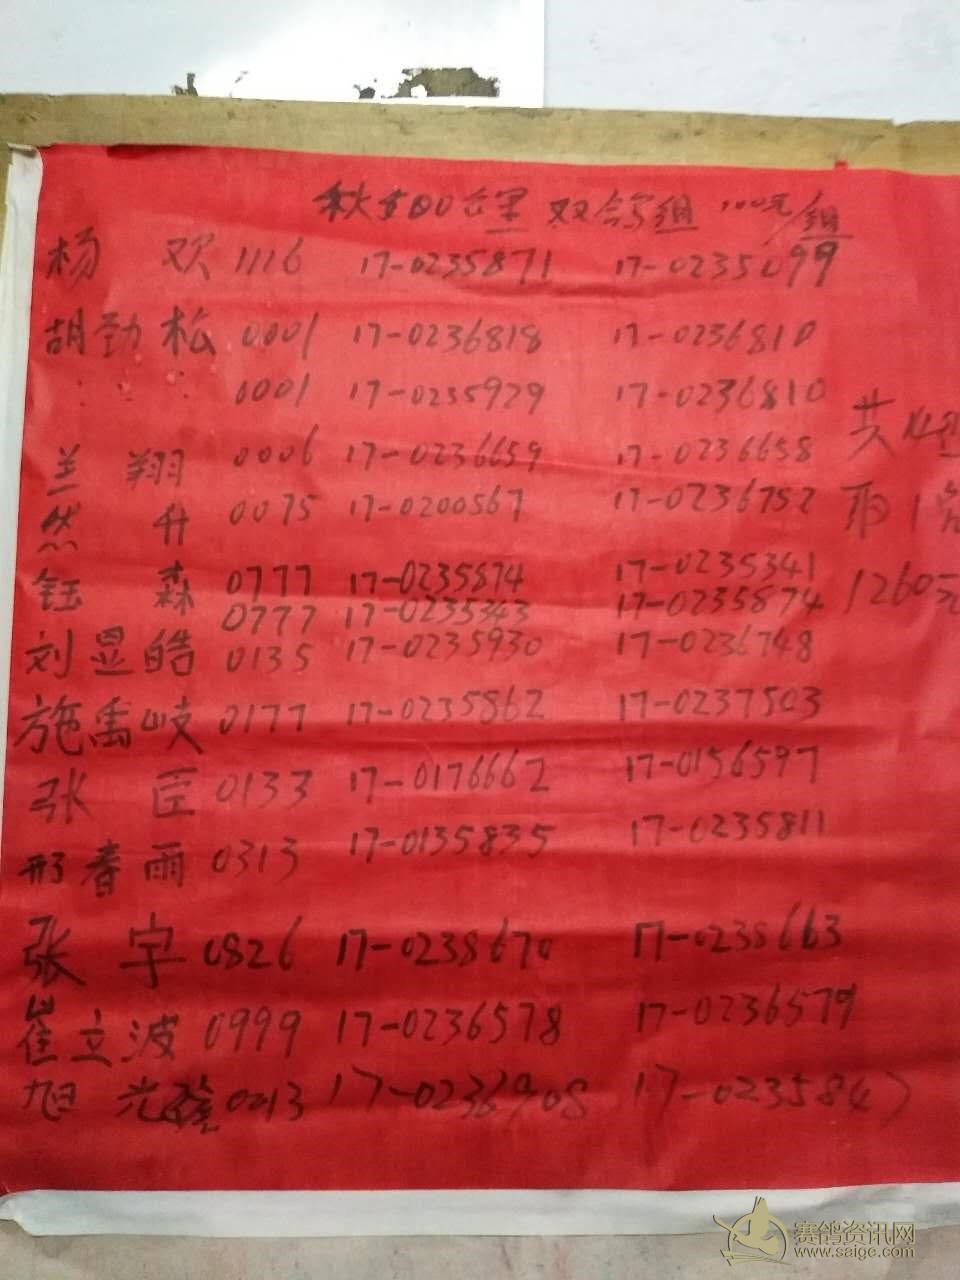 秋500公里 双鸽组 100元/组
杨 欢 1116 17-0235871 17-0235099
胡劲松 0001 17-0236818 17-0236810
: : : 0001 17-0235929 17-0236810
共14组
兰 翔 0006 17-0236659 17-0236658
取1名
然 升 0075 17-0200567 17-0236752
1260元
钰 森 0777 17-0235874 17-0235341
0777 17-0235343 17-0235874
刘显皓 0135 17-0235930 17-0236748
施禹岐 0177 17-0235862 17-0237503
张 臣 0133 17-0176662 17-0156597
邢春雨 0313 17-0135835 17-0235811
张 宇 0826 17-0238670 17-0238663
崔立波 0999 17-0236578 17-0236579
旭 光 0213 17-0236908 17-0235847
赛鸽资讯网
www.saige.com